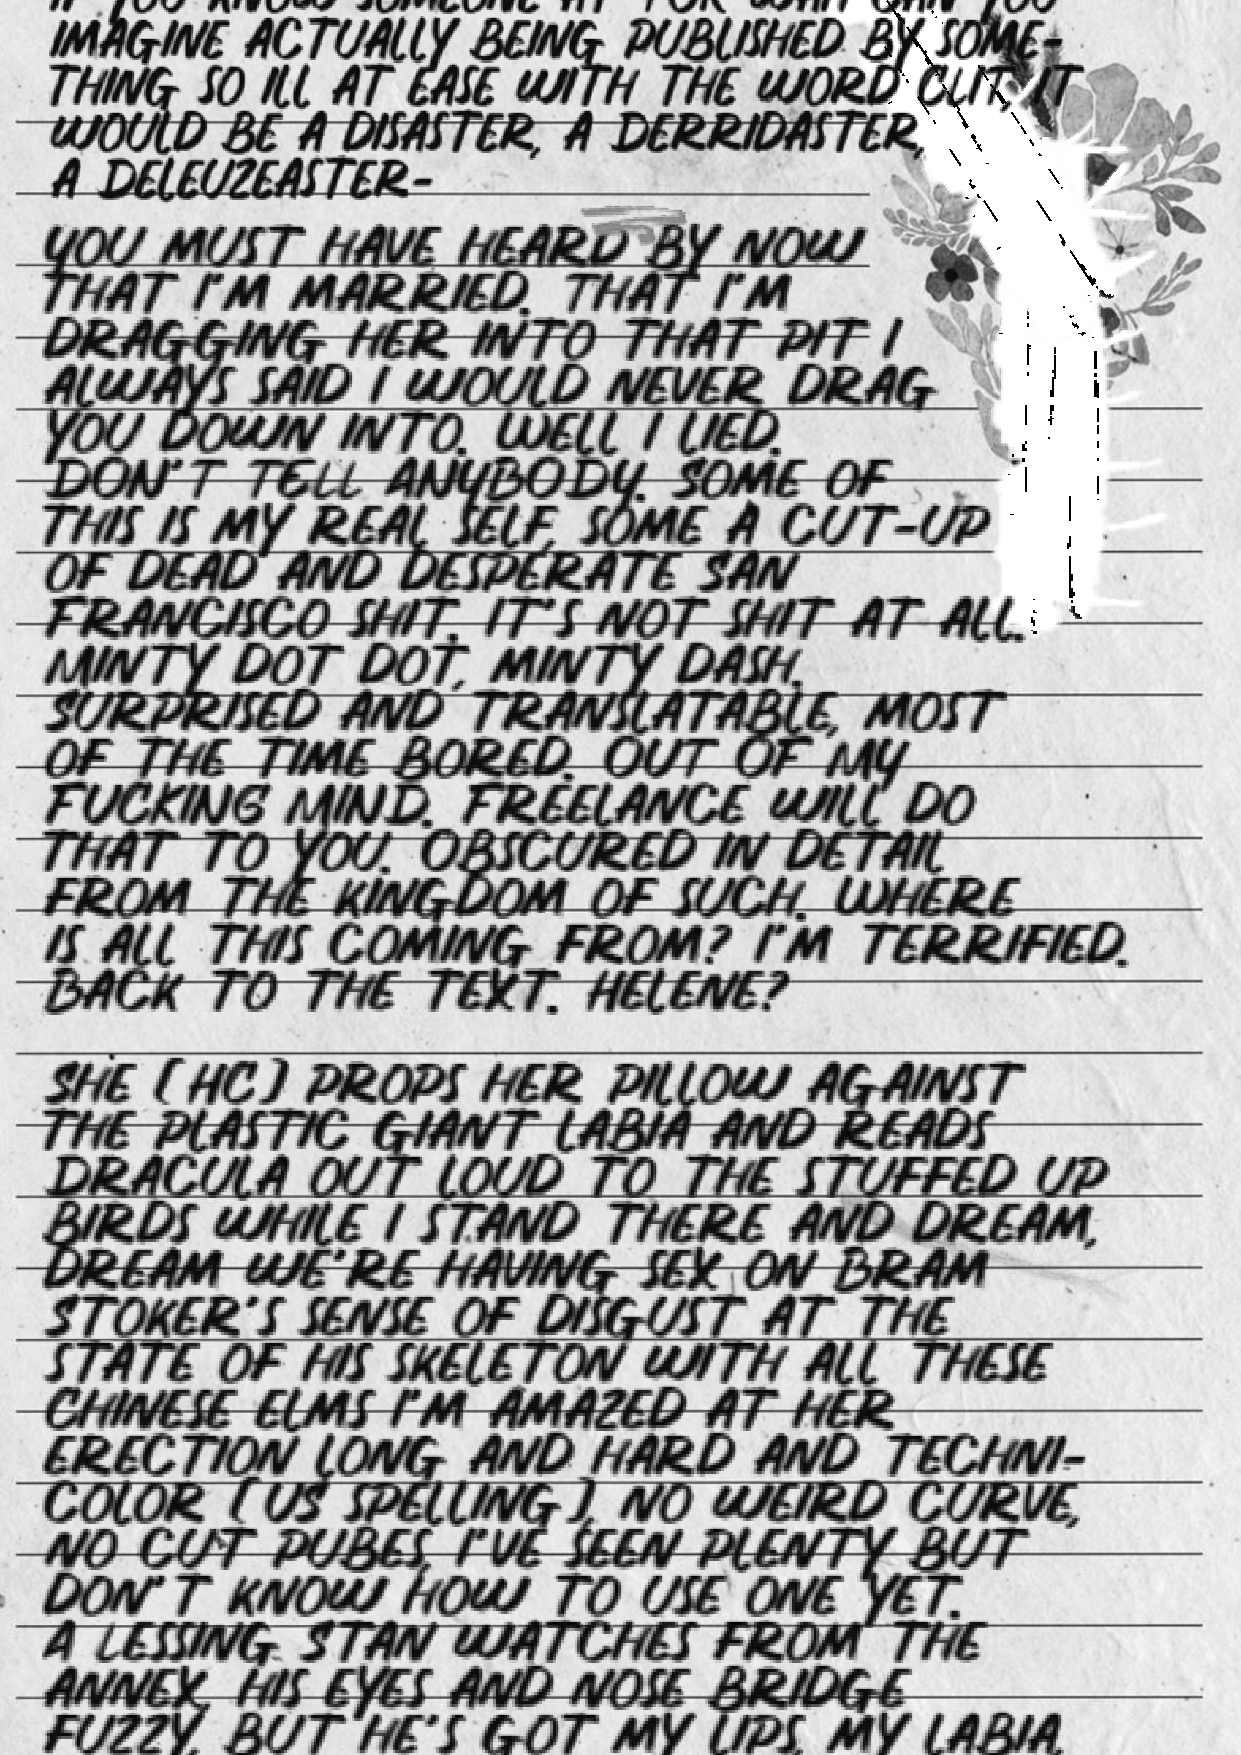 IF YOU KNOW SOMEONE AT TOR WAH CAN YOU
IMAGINE ACTUALLY BEING PUBLISHED BY SOME-
THING SO ILL AT EASE WITH THE WORD CLIT IT
WOULD BE A DISASTER, A DERRIDASTER,
A DELEUZEASTER-
YOU MUST HAVE HEARD BY NOW
THAT I'M MARRIED. THAT I'M
DRAGGING HER INTO THAT PIT I
ALWAYS SAID I WOULD NEVER DRAG
YOU DOWN INTO. WELL I LIED.
DON'T TELL ANYBODY. SOME OF
THIS IS MY REAL SELF, SOME A CUT-UP
OF DEAD AND DESPERATE SAN
FRANCISCO SHIT. IT'S NOT SHIT AT ALL.
MINTY DOT DOT, MINTY DASH.
SURPRISED AND TRANSLATABLE, MOST
OF THE TIME BORED. OUT OF MY
FUCKING MIND. FREELANCE WILL DO
THAT TO YOU. OBSCURED IN DETAIL
FROM THE KINGDOM OF SUCH. WHERE
IS ALL THIS COMING FROM? I'M TERRIFIED.
BACK TO THE TEXT. HELENE?
SHE (HC) PROPS HER PILLOW AGAINST
THE PLASTIC GIANT LABIA AND READS
DRACULA OUT LOUD TO THE STUFFED UP
BIRDS WHILE I STAND THERE AND DREAM,
DREAM WE'RE HAVING SEX ON BRAM
STOKER'S SENSE OF DISGUST AT THE
STATE OF HIS SKELETON WITH ALL THESE
CHINESE ELMS I'M AMAZED AT HER
ERECTION LONG AND HARD AND TECHNI-
COLOR (US SPELLING), NO WEIRD CURVE,
NO CUT PUBES, I'VE SEEN PLENTY BUT
DON'T KNOW HOW TO USE ONE YET.
A LESSING STAN WATCHES FROM THE
ANNEX, HIS EYES AND NOSE BRIDGE
FUZZY, BUT HE'S GOT MY LIPS, MY LABIA,